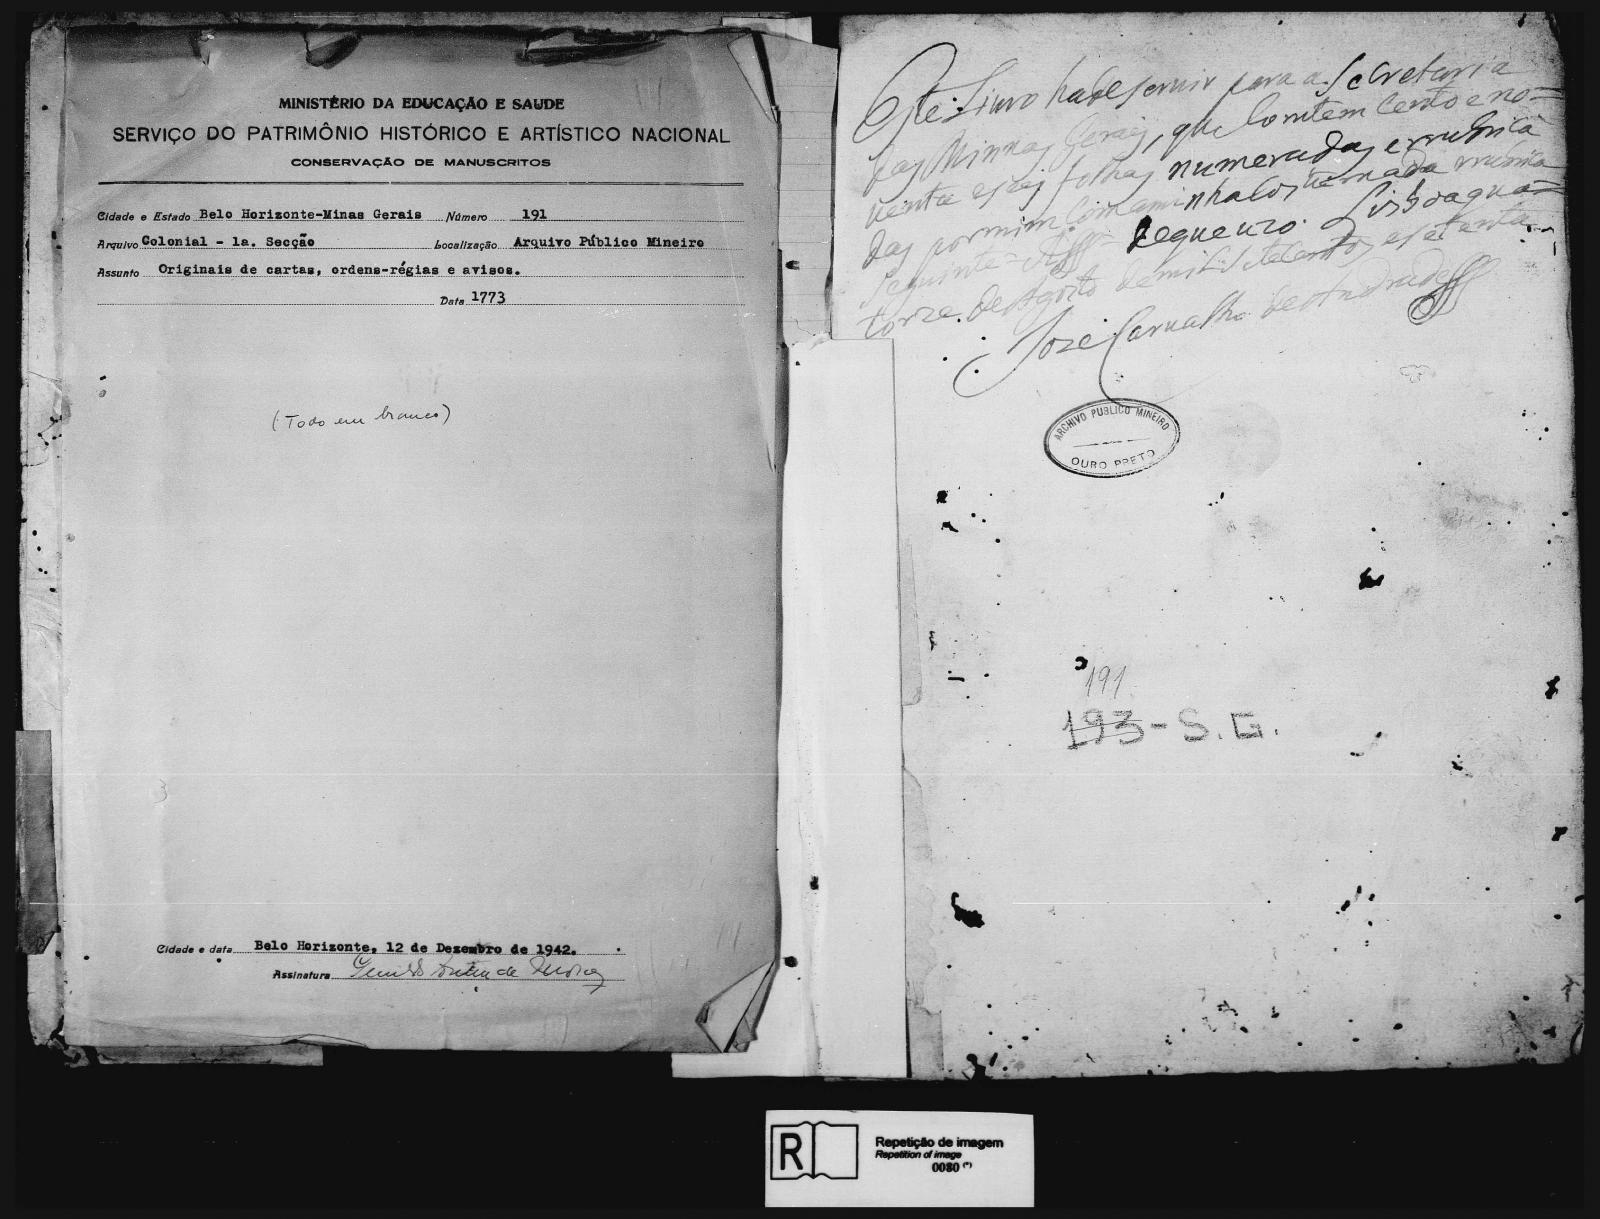 MINISTÉRIO DA EDUCAÇÃO E SAUDE
SERVIÇO DO PATRIMÔNIO HISTÓRICO E ARTÍSTICO NACIONAL
CONSERVAÇÃO DE MANUSCRITOS
Cidade e Estado Belo Horizonte-Minas Gerais Número 191
Arquivo Colonial - 1a. Secção Localização Arquivo Público Mineiro
Assunto Originais de cartas, ordens-régias e avisos.
Data 1773
(Todo em branco)
Cidade e data Belo Horizonte, 12 de Dezembro de 1942.
Assinatura
Este Livro ha de servir para a Secretaria
das Minnas Geraes, que Comtem Cento e no=
venta e seis folhas numeradas e rubrica
das por mim, Com a minha Costumada rubrica
Seguinte Pequeno. Lisboa qua=
torze de Agosto de mil e Setecentos e setenta
Joze Carvalho de Andrade
ARCHIVO PUBLICO MINEIRO
OURO PRETO
191
193 - S. G.
R
Repetição de imagem
Repetition of image
0080 (*)